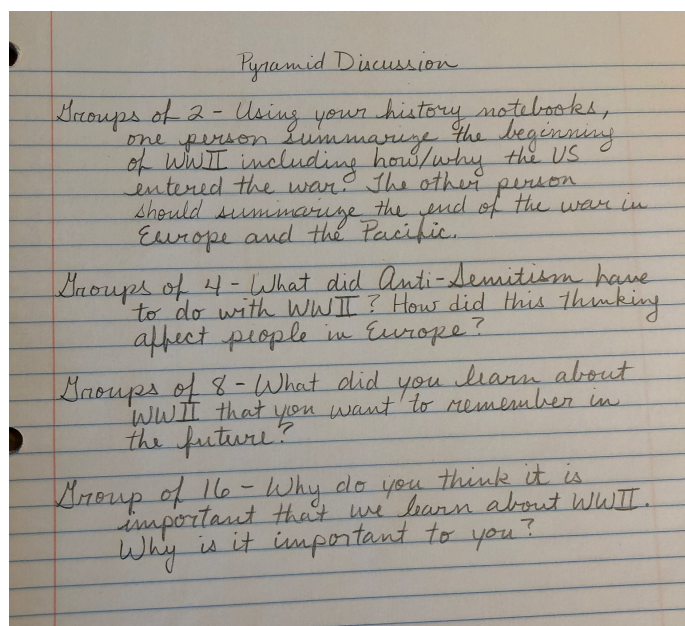 Pyramid Discussion
Groups of 2 - Using your history notebooks,
one person summarize the beginning
of WWII including how/why the US
entered the war. The other person
should summarize the end of the war in
Europe and the Pacific.
Groups of 4 - What did Anti-Semitism have
to do with WWII? How did this thinking
affect people in Europe?
Groups of 8 - What did you learn about
WWII that you want to remember in
the future?
Group of 16 - Why do you think it is
important that we learn about WWII.
Why is it important to you?